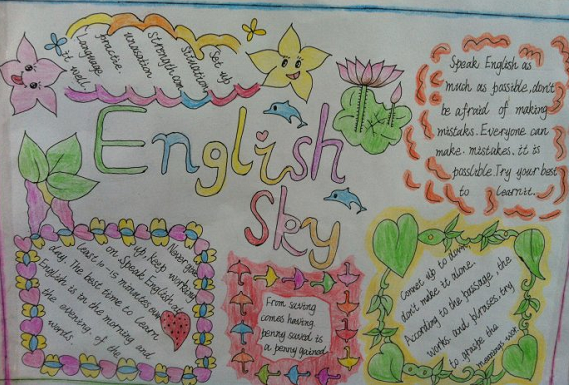 Set up
situation
Strength.com
unaisation
practive
Language
it well.
English
Sky
Speak English as
much as possible, don't
be afraid of making
mistaks. Everyone can
make. mistakes. it is
posslible. Try your best
to learn it.
Never give
up keep working
on Speak English
least 10-15 minutes ever
day. The best time to Learn
English is in the morning and
the evening of the
world.
From saving
comes having
penny saved is
a penny gained
set up down
don't make it alone.
According to the passage, the
works. and phrases, try
to graspe the
meanings